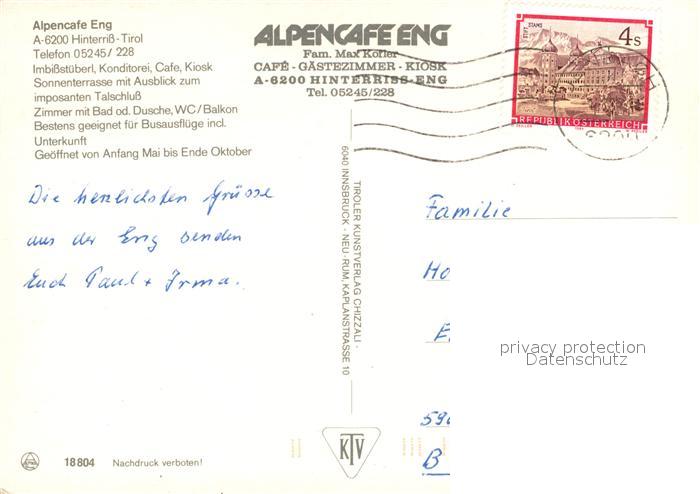 Alpencafe Eng
A-6200 Hinterriß-Tirol
Telefon 05245/228
Imbißstüberl, Konditorei, Cafe, Kiosk
Sonnenterrasse mit Ausblick zum
imposanten Talschluß
Zimmer mit Bad od. Dusche, WC/Balkon
Bestens geeignet für Busausflüge incl.
Unterkunft
Geöffnet von Anfang Mai bis Ende Oktober
ALPENCAFE ENG
Fam. Max Kofler
CAFÉ - GÄSTEZIMMER - KIOSK
A-6200 HINTERRISS-ENG
Tel. 05245/228
STIFT STAMS
4 S
REPUBLIK ÖSTERREICH
Die herzlichsten Grüsse
aus der Eng senden
Euch Paul + Irma.
TIROLER KUNSTVERLAG CHIZZALI -
6040 INNSBRUCK - NEU-RUM, KAPLANSTRASSE 10
Familie
Ho
E
59
B
privacy protection
Datenschutz
KTV
18804 Nachdruck verboten!